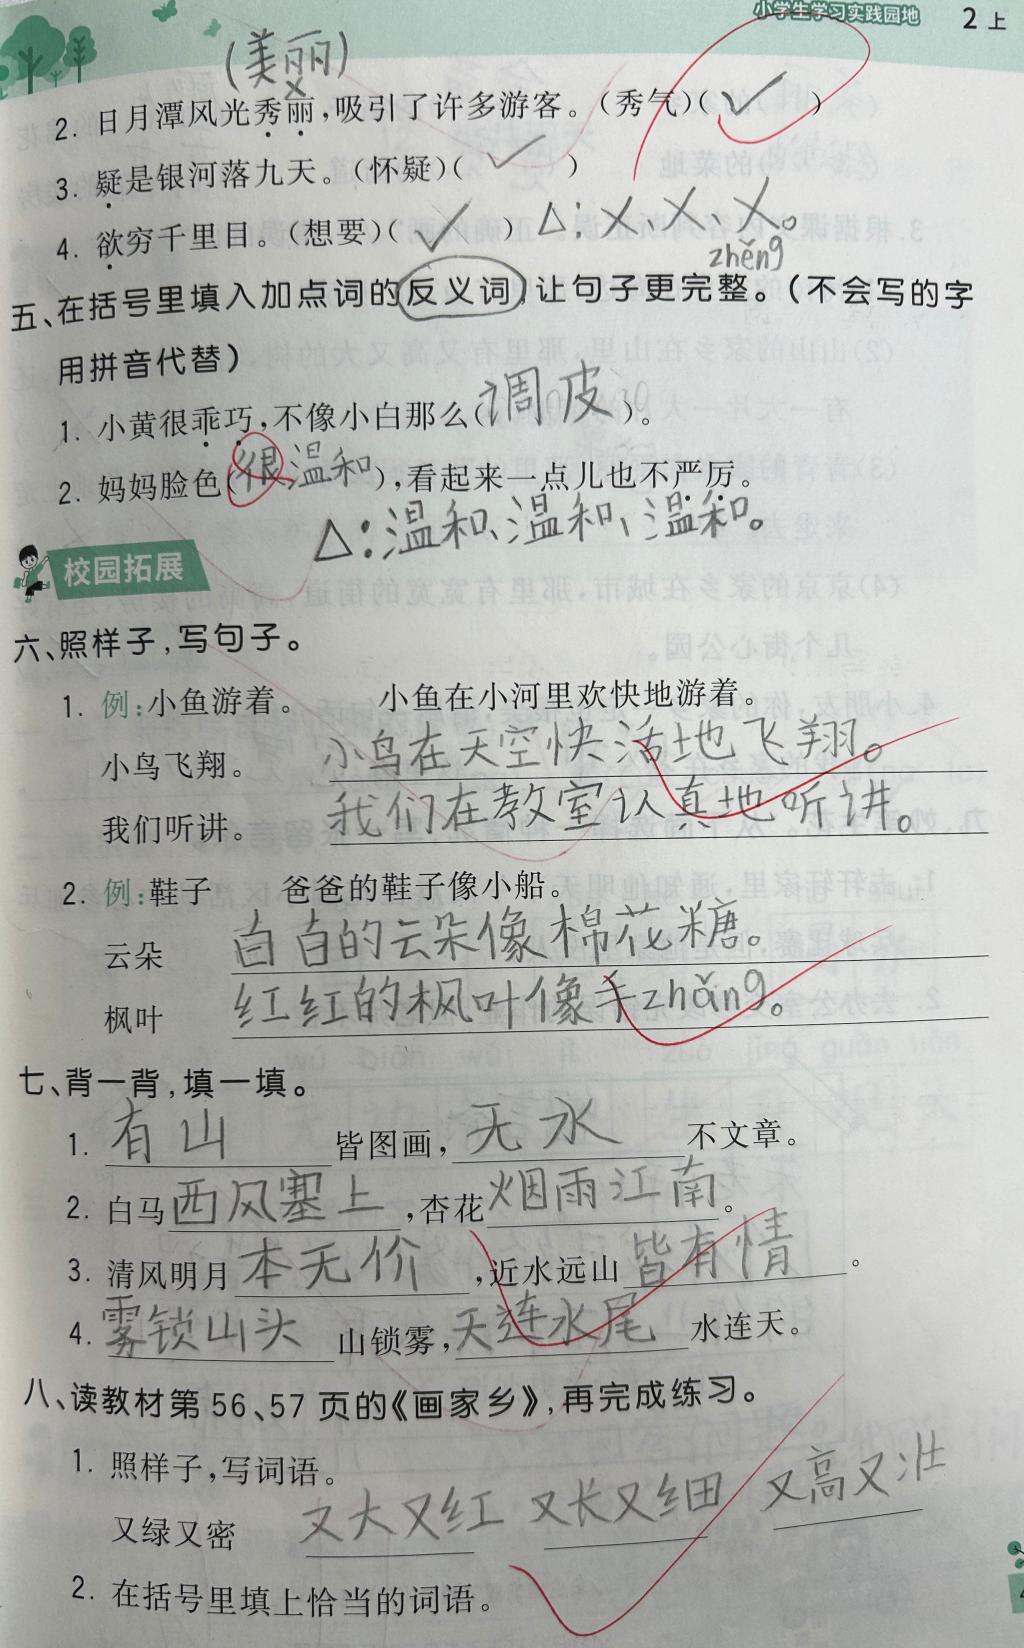 小学生学习实践园地 2上
(美丽)
2. 日月潭风光秀丽,吸引了许多游客。(秀气)( ✓ )
3. 疑是银河落九天。(怀疑)( ✓ )
4. 欲穷千里目。(想要)( ✓ ) △:×、×、×。
zhěng
五、在括号里填入加点词的反义词,让句子更完整。(不会写的字
用拼音代替)
1. 小黄很乖巧,不像小白那么(调皮)。
2. 妈妈脸色(很温和),看起来一点儿也不严厉。
△:温和、温和、温和。
校园拓展
六、照样子,写句子。
1. 例:小鱼游着。 小鱼在小河里欢快地游着。
小鸟飞翔。 小鸟在天空快活地飞翔。
我们听讲。 我们在教室认真地听讲。
2. 例:鞋子 爸爸的鞋子像小船。
云朵 白白的云朵像棉花糖。
枫叶 红红的枫叶像手zhǎng。
七、背一背,填一填。
1. 有山皆图画,无水不文章。
2. 白马西风塞上,杏花烟雨江南。
3. 清风明月本无价,近水远山皆有情。
4. 雾锁山头山锁雾,天连水尾水连天。
八、读教材第56、57页的《画家乡》,再完成练习。
1. 照样子,写词语。
又绿又密 又大又红 又长又细 又高又壮
2. 在括号里填上恰当的词语。